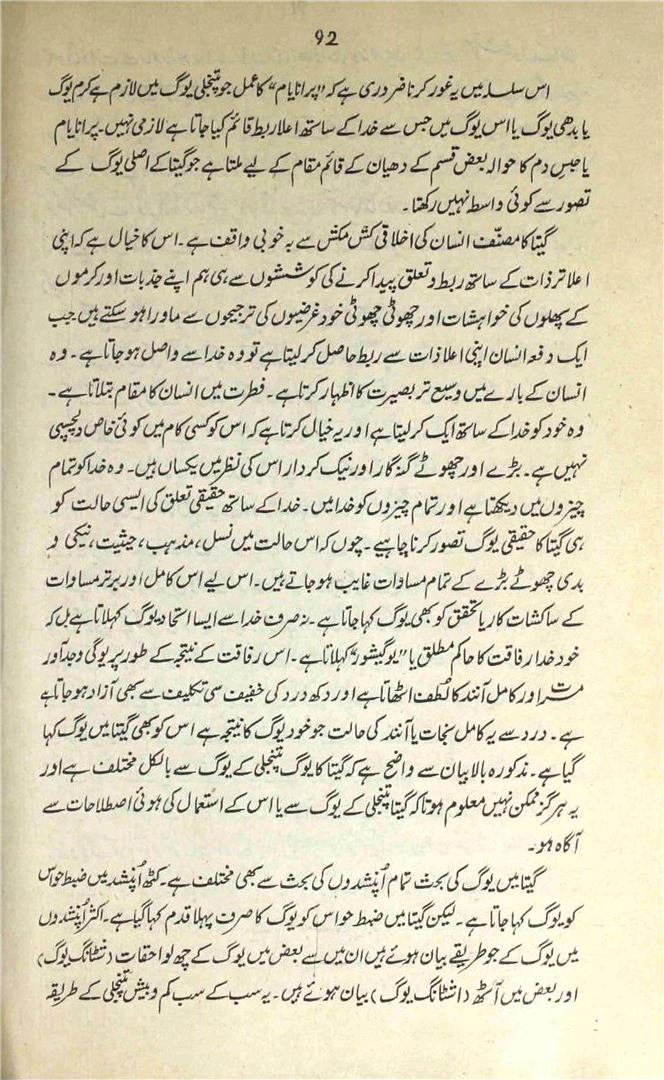 92
اس سلسلہ میں یہ غور کرنا ضروری ہے کہ "پرانایام" کا عمل جو پتنجلی یوگ میں لازم ہے کرم یوگ
یا بدھی یوگ یا اس یوگ میں جس سے خدا کے ساتھ اعلا ربط قائم کیا جاتا ہے لازمی نہیں۔ پرانایام
یا حبسِ دم کا حوالہ بعض قسم کے دھیان کے قائم مقام کے لیے ملتا ہے جو گیتا کے اصلی یوگ کے
تصور سے کوئی واسطہ نہیں رکھتا۔
گیتا کا مصنّف انسان کی اخلاقی کش مکش سے بہ خوبی واقف ہے۔ اس کا خیال ہے کہ اپنی
اعلا تر ذات کے ساتھ ربط و تعلق پیدا کرنے کی کوششوں سے ہی ہم اپنے جذبات اور کرموں
کے پھلوں کی خواہشات اور چھوٹی چھوٹی خود غرضیوں کی ترجیحوں سے ماورا ہو سکتے ہیں جب
ایک دفعہ انسان اپنی اعلا ذات سے ربط حاصل کر لیتا ہے تو وہ خدا سے واصل ہو جاتا ہے۔ وہ
انسان کے بارے میں وسیع تر بصیرت کا اظہار کرتا ہے۔ فطرت میں انسان کا مقام بتلاتا ہے۔
وہ خود کو خدا کے ساتھ ایک کر لیتا ہے اور یہ خیال کرتا ہے کہ اس کو کسی کام میں کوئی خاص دلچسپی
نہیں ہے۔ بڑے اور چھوٹے گنہگار اور نیک کردار اس کی نظر میں یکساں ہیں۔ وہ خدا کو تمام
چیزوں میں دیکھتا ہے اور تمام چیزوں کو خدا میں۔ خدا کے ساتھ حقیقی تعلق کی ایسی حالت کو
ہی گیتا کا حقیقی یوگ تصور کرنا چاہیے۔ چوں کہ اس حالت میں نسل، مذہب، حیثیت، نیکی و
بدی چھوٹے بڑے کے تمام مساوات غایب ہو جاتے ہیں۔ اس لیے اس کامل اور برتر مساوات
کے ساکشات کار یا تحقق کو بھی یوگ کہا جاتا ہے۔ نہ صرف خدا سے ایسا اتحاد یوگ کہلاتا ہے بل کہ
خود خدا رفاقت کا حاکم مطلق یا "یوگیشور" کہلاتا ہے۔ اس رفاقت کے نتیجہ کے طور پر یوگی وجد آور
اور کامل آنند کا لُطف اٹھاتا ہے اور دکھ درد کی خفیف سی تکلیف سے بھی آزاد ہو جاتا ہے
ہے۔ درد سے یہ کامل نجات یا آنند کی حالت جو خود یوگ کا نتیجہ ہے اس کو بھی گیتا میں یوگ کہا
گیا ہے۔ مذکورہ بالا بیان سے واضح ہے کہ گیتا کا یوگ پتنجلی کے یوگ سے بالکل مختلف ہے اور
یہ ہرگز ممکن نہیں معلوم ہوتا کہ گیتا پتنجلی کے یوگ سے یا اس کے استعمال کی ہوئی اصطلاحات سے
آگاہ ہو۔
گیتا میں یوگ کی بحث تمام اُپنشدوں کی بحث سے بھی مختلف ہے۔ کٹھ اُپنشد میں ضبط حواس
کو یوگ کہا جاتا ہے۔ لیکن گیتا میں ضبط حواس کو یوگ کا صرف پہلا قدم کہا گیا ہے۔ اکثر اُپنشدوں
میں یوگ کے جو طریقے بیان ہوئے ہیں ان میں سے بعض میں یوگ کے چھ لواحقات (شٹانگ یوگ)
اور بعض میں آٹھ (اشٹانگ یوگ) بیان ہوئے ہیں۔ یہ سب کے سب کم و بیش پتنجلی کے طریقہ